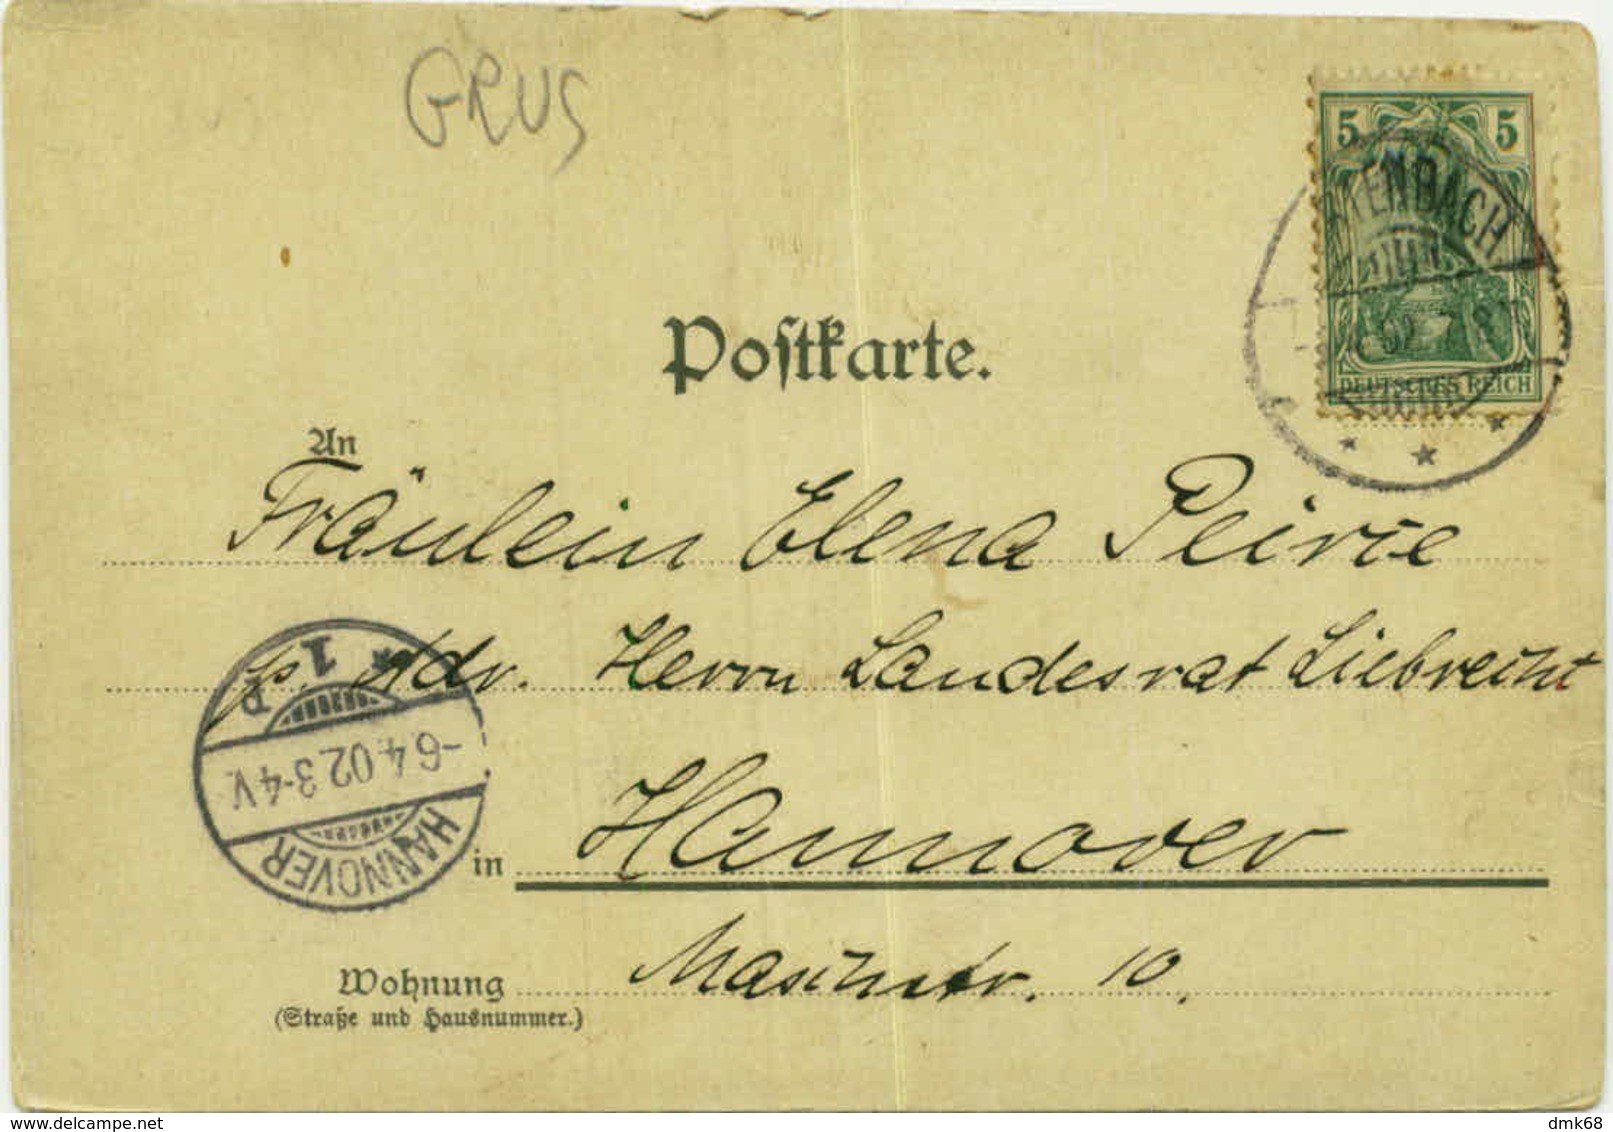 GRUS
5 5
DEUTSCHES REICH
02
Postkarte.
An
Fräulein Elena Peirce
p. Adr. Herrn Landesrat Liebrecht
in Hannover
HANNOVER
-6.4.02.3-4V.
* 1 P
Wohnung
(Straße und Hausnummer.)
10.
delcampe.net
dmk68